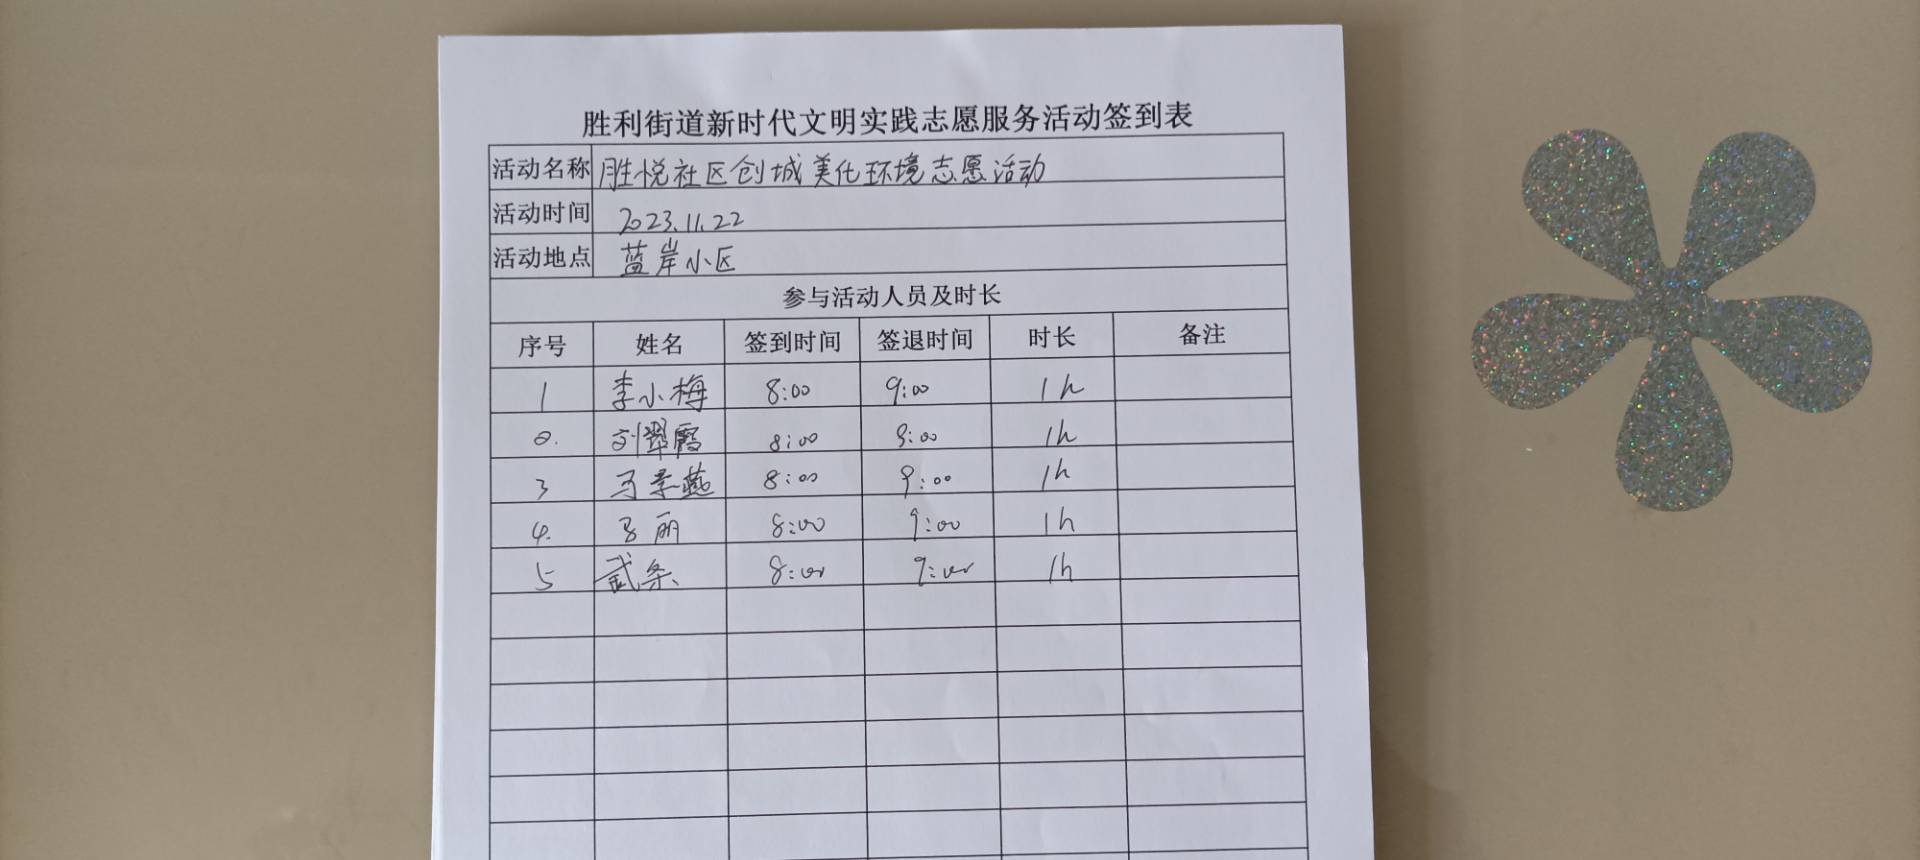 胜利街道新时代文明实践志愿服务活动签到表
活动名称 胜悦社区创城美化环境志愿活动
活动时间 2023.11.22
活动地点 蓝岸小区
参与活动人员及时长
序号 姓名 签到时间 签退时间 时长 备注
1 李小梅 8:00 9:00 1h
2. 刘翠霞 8:00 9:00 1h
3 马景燕 8:00 9:00 1h
4. 马丽 8:00 9:00 1h
5 武条 8:00 9:00 1h